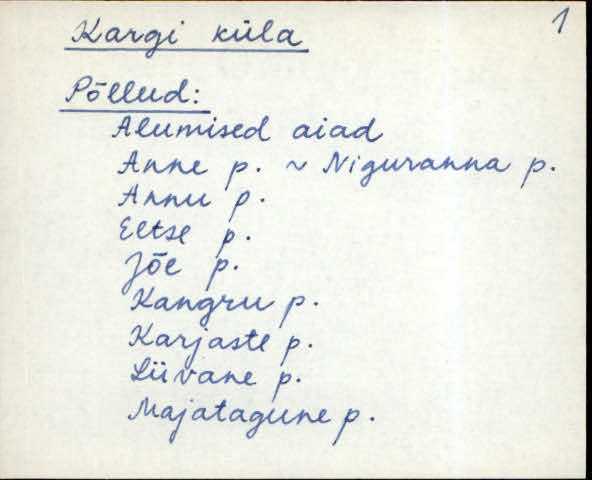 Kargi küla 1
Põllud:
Alumised aiad
Anne p. ~ Niguranna p.
Annu p.
Eetse p.
Jõe p.
Kangru p.
Karjaste p.
Liivane p.
Majatagune p.